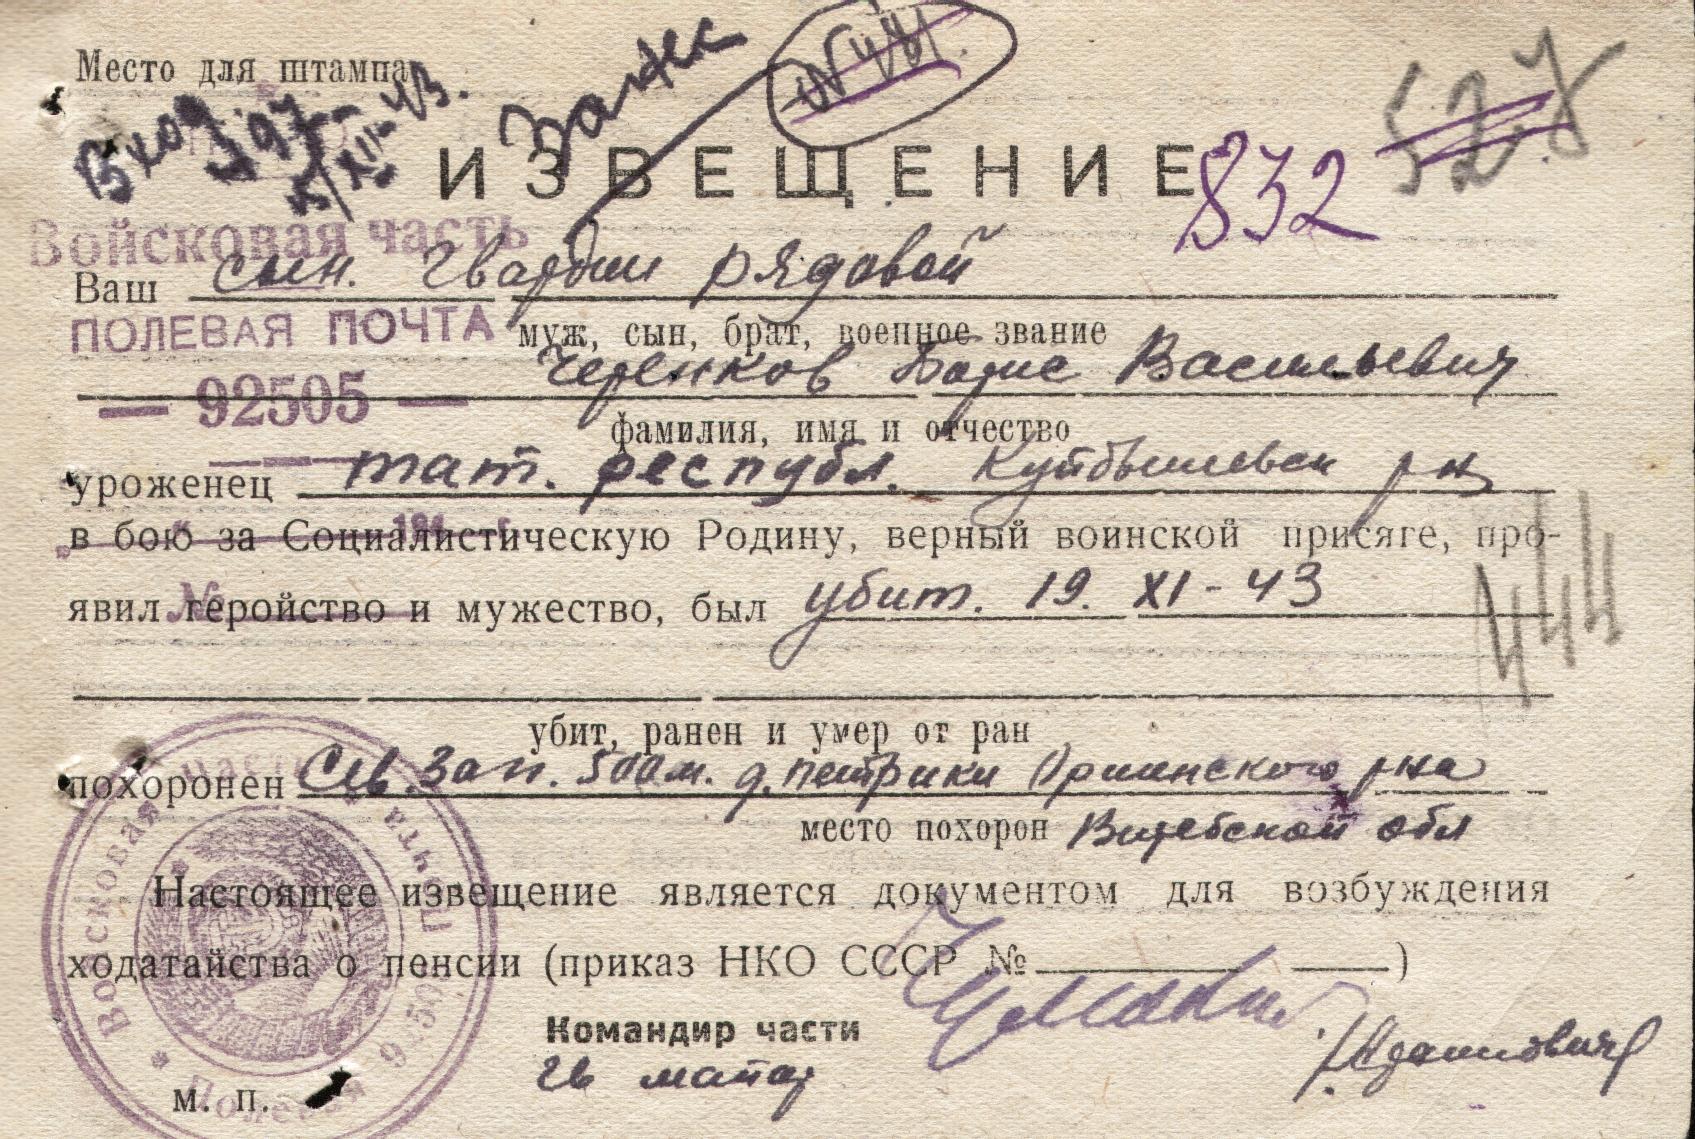 Место для штампа
Вход 197
5/XII-43.
527
ИЗВЕЩЕНИЕ
832
Войсковая часть
Ваш сын. Гвардии рядовой
ПОЛЕВАЯ ПОЧТА
муж, сын, брат, военное звание
Черенков Борис Васильевич
— 92505 —
фамилия, имя и отчество
уроженец тат. республ. Куйбышевск р-н
194 г.
в бою за Социалистическую Родину, верный воинской присяге, про-
№
явил геройство и мужество, был убит. 19. XI-43
444
убит, ранен и умер от ран
похоронен Сев. Зап. 500 м. д. петрики Оршинского р-на
место похорон Витебской обл
Настоящее извещение является документом для возбуждения
ходатайства о пенсии (приказ НКО СССР № )
Командир части
гв майор
м. п.
Войсковая часть Полевая почта 92505